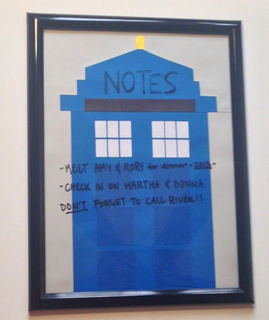 NOTES
-MEET AMY & RORY for dinner -2012-
-CHECK IN ON MARTHA & DONNA
DON'T FORGET TO CALL RIVER!!